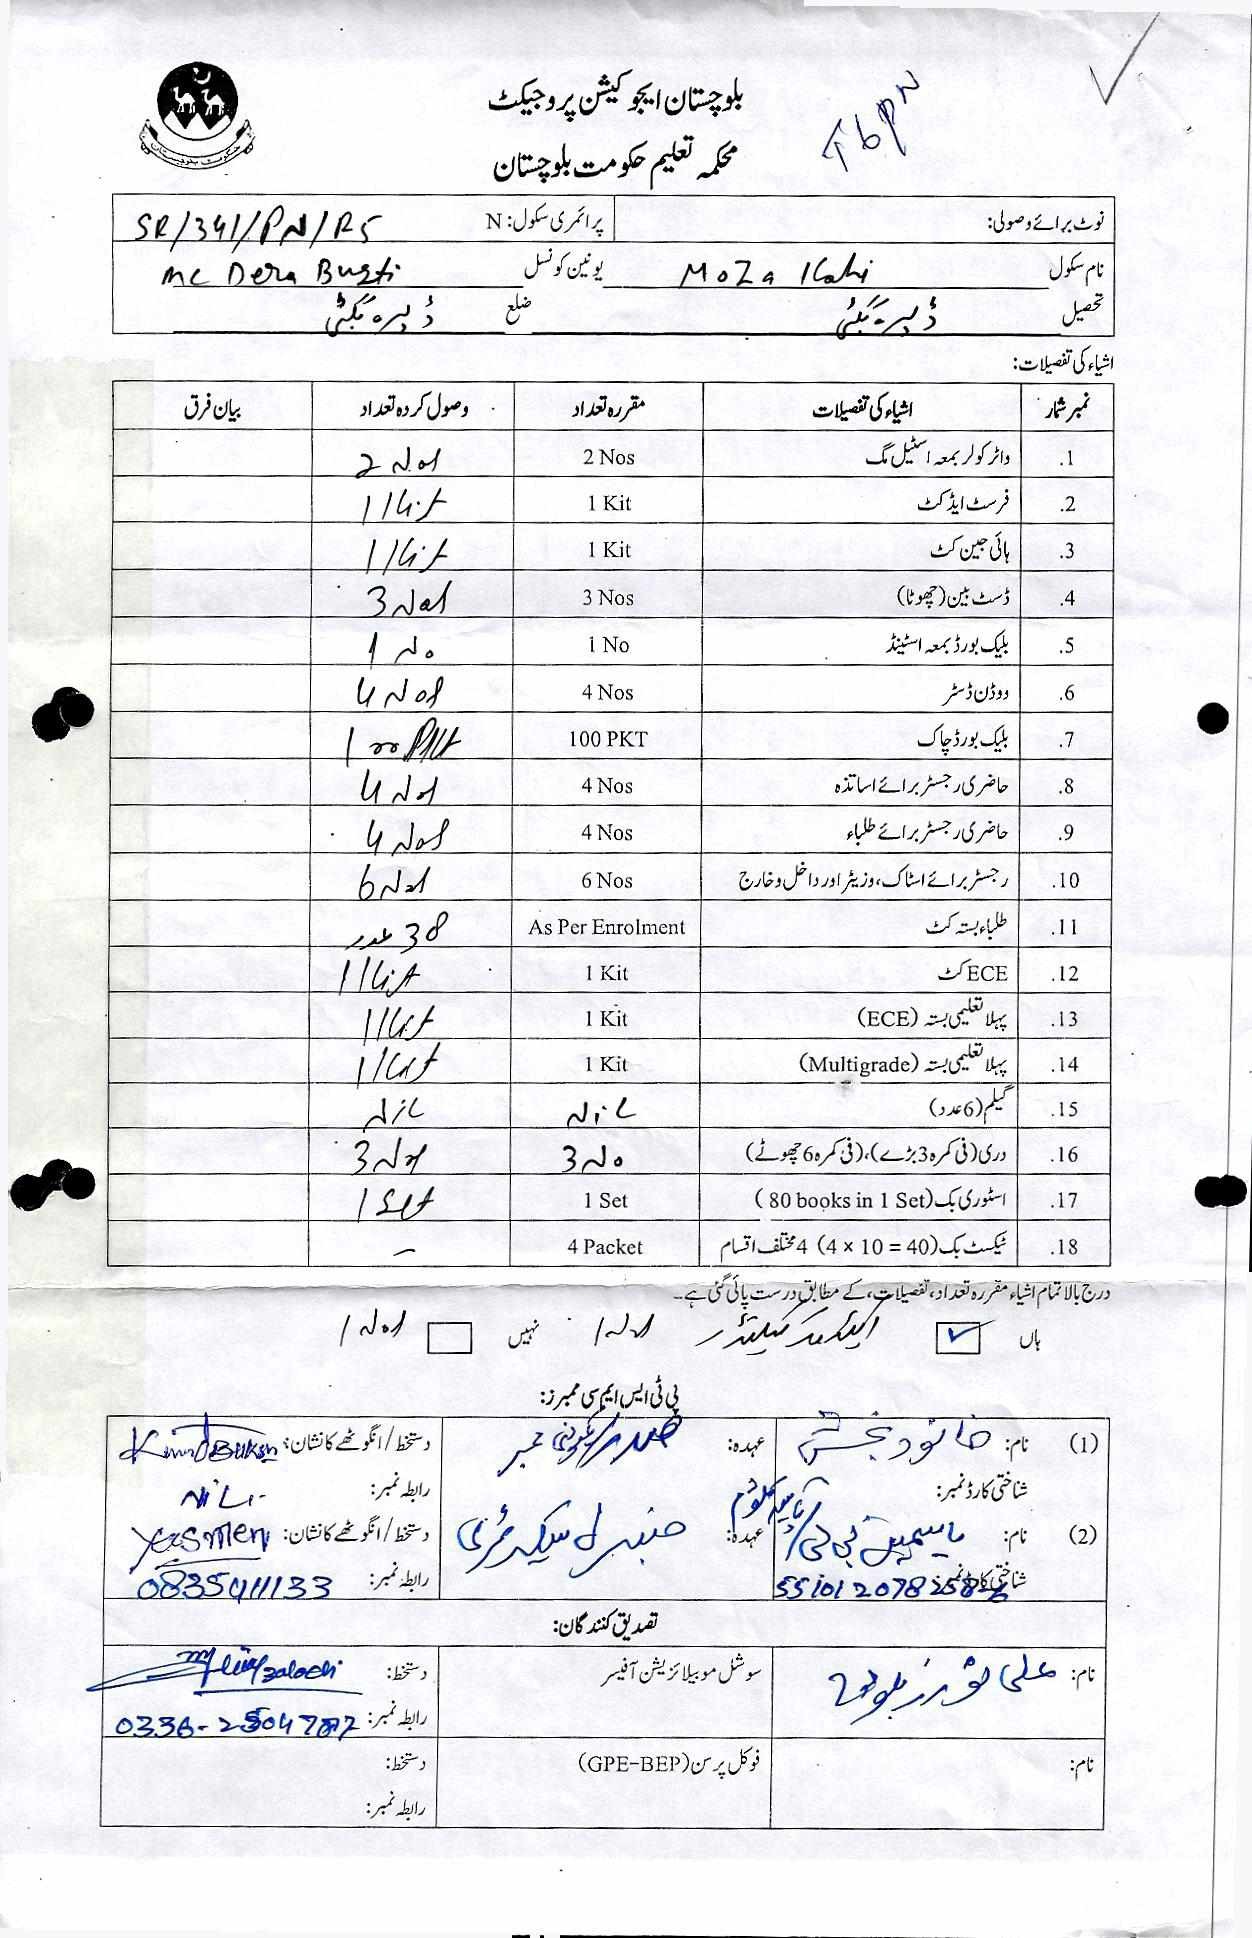 بلوچستان ایجوکیشن پروجیکٹ
محکمہ تعلیم حکومت بلوچستان
حکومت بلوچستان
نوٹ برائے وصولی: پرائمری سکول: N SR/341/PN/RS
نام سکول Moza Ilahi یونین کونسل MC Dera Bugti
تحصیل ڈیرہ بگٹی ضلع ڈیرہ بگٹی
اشیاء کی تفصیلات:
نمبر شمار اشیاء کی تفصیلات مقررہ تعداد وصول کردہ تعداد بیان فرق
1. واٹر کولر بمعہ اسٹیل مگ 2 Nos 2 Nos
2. فرسٹ ایڈ کٹ 1 Kit 1 Kit
3. ہائی جین کٹ 1 Kit 1 Kit
4. ڈسٹ بین (چھوٹا) 3 Nos 3 Nos
5. بلیک بورڈ بمعہ اسٹینڈ 1 No 1 No
6. ووڈن ڈسٹر 4 Nos 4 Nos
7. بلیک بورڈ چاک 100 PKT 100 PKt
8. حاضری رجسٹر برائے اساتذہ 4 Nos 4 Nos
9. حاضری رجسٹر برائے طلباء 4 Nos 4 Nos
10. رجسٹر برائے اسٹاک، وزیٹر اور داخل و خارج 6 Nos 6 Nos
11. طلباء بستہ کٹ As Per Enrolment 38 عدد
12. ECE کٹ 1 Kit 1 Kit
13. پہلا تعلیمی بستہ (ECE) 1 Kit 1 Kit
14. پہلا تعلیمی بستہ (Multigrade) 1 Kit 1 Kit
15. گیلم (6 عدد) NiL NiL
16. دری (فی کمرہ 3 بڑے)، (فی کمرہ 6 چھوٹے) 3 No 3 Nos
17. اسٹوری بک (80 books in 1 Set) 1 Set 1 Set
18. ٹیکسٹ بک (4 × 10 = 40) 4 مختلف اقسام 4 Packet –
درج بالا تمام اشیاء مقررہ تعداد، تفصیلات، کے مطابق درست پائی گئی ہے۔
ہاں ✓ 1 Nos نہیں 1 Nos
پی ٹی ایس ایم سی ممبرز:
(1) نام: خانود بخش عہدہ: ممبر دستخط/انگوٹھے کا نشان:
شناختی کارڈ نمبر: رابطہ نمبر: NiL
(2) نام: یاسمین بی بی عہدہ: جنرل سیکریٹری دستخط/انگوٹھے کا نشان: Yasmen
شناختی کارڈ نمبر: رابطہ نمبر: 0835411133
تصدیق کنندگان:
نام: علی نواز بلوچ سوشل موبیلائزیشن آفیسر دستخط:
رابطہ نمبر:
نام: فوکل پرسن (GPE-BEP) دستخط:
رابطہ نمبر: